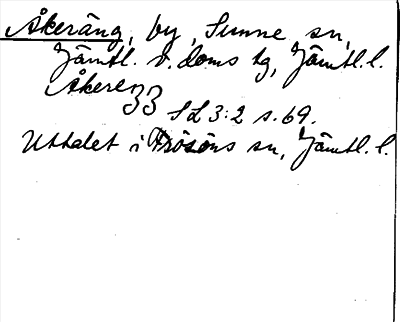 Åkeräng, by, Sunne sn,
Jämtl. v. doms tg, Jämtl. l.
Åkereʒʒ
SL 3:2 s. 69.
Uttalet i Frösöns sn, Jämtl. l.